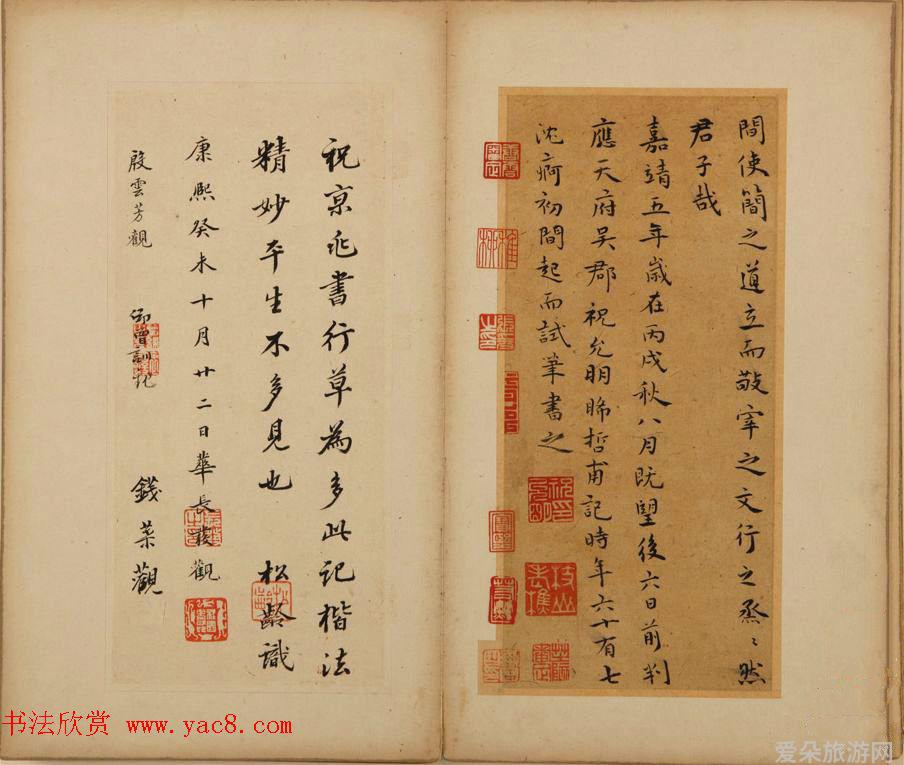 間使簡之道立而敬宰之文行之烝〻然
君子哉
嘉靖五年歲在丙戌秋八月既朢後六日前判
應天府吴郡祝允明晞哲甫記時年六十有七
沈痾初間起而試筆書之
祝京兆書行草為多此記楷法
精妙平生不多見也 松齡識
康熙癸未十月廿二日華長發觀
殷雲芳觀 鄒曾訓記 錢葉灝
书法欣赏 www.yac8.com
爱朵旅游网